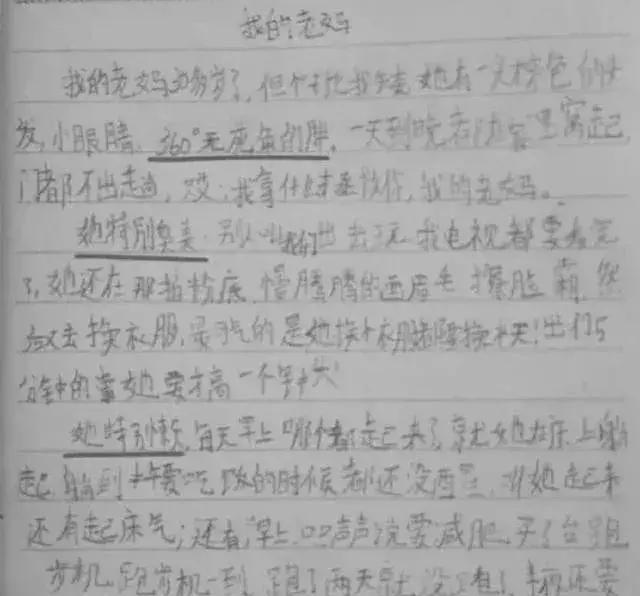 我的老妈
我的老妈30多岁了，但个子比我矮，她有一头棕色的头
发，小眼睛，360°无死角的胖，一天到晚在家里窝起，
门都不出，哎，我拿什么拯救你，我的老妈。
她特别臭美，别人叫我们出去玩，我电视都要看完
了，她还在那拍粉底，慢腾腾的画眉毛，擦脸霜，然
后又去换衣服，最气的是她换个衣服都要换半天！出门5
分钟的事她要搞一个钟头！
她特别懒，每天早上哪个都起来了，就她在床上躺
起，躺到中午要吃饭的时候都还没醒，叫她起来
还有起床气；还有，早上口口声声说要减肥，买了台跑
步机，跑步机一到，跑了两天就没跑了，还要